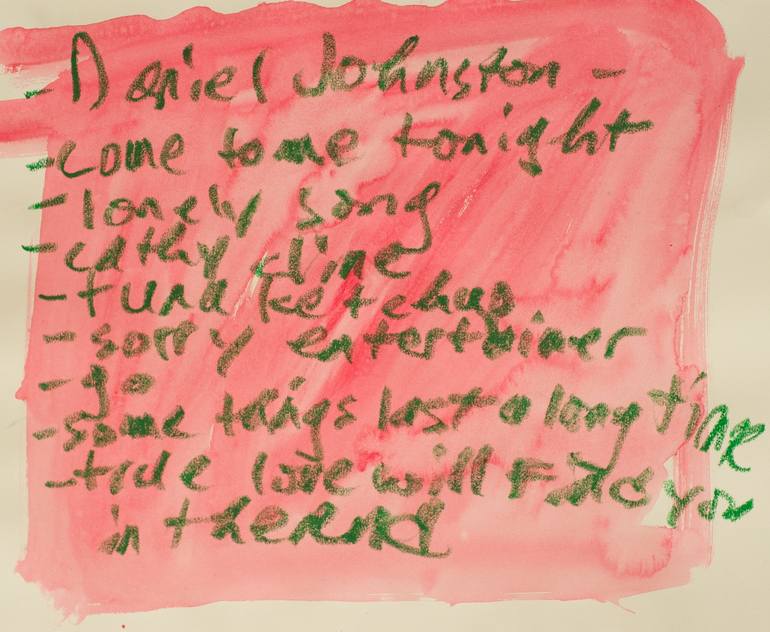 - Daniel Johnston -
- come to me tonight
- lonely song
- cathy cline
- tuna ketchup
- sorry entertainer
- go
- some things last a long time
- true love will Find you
in the end